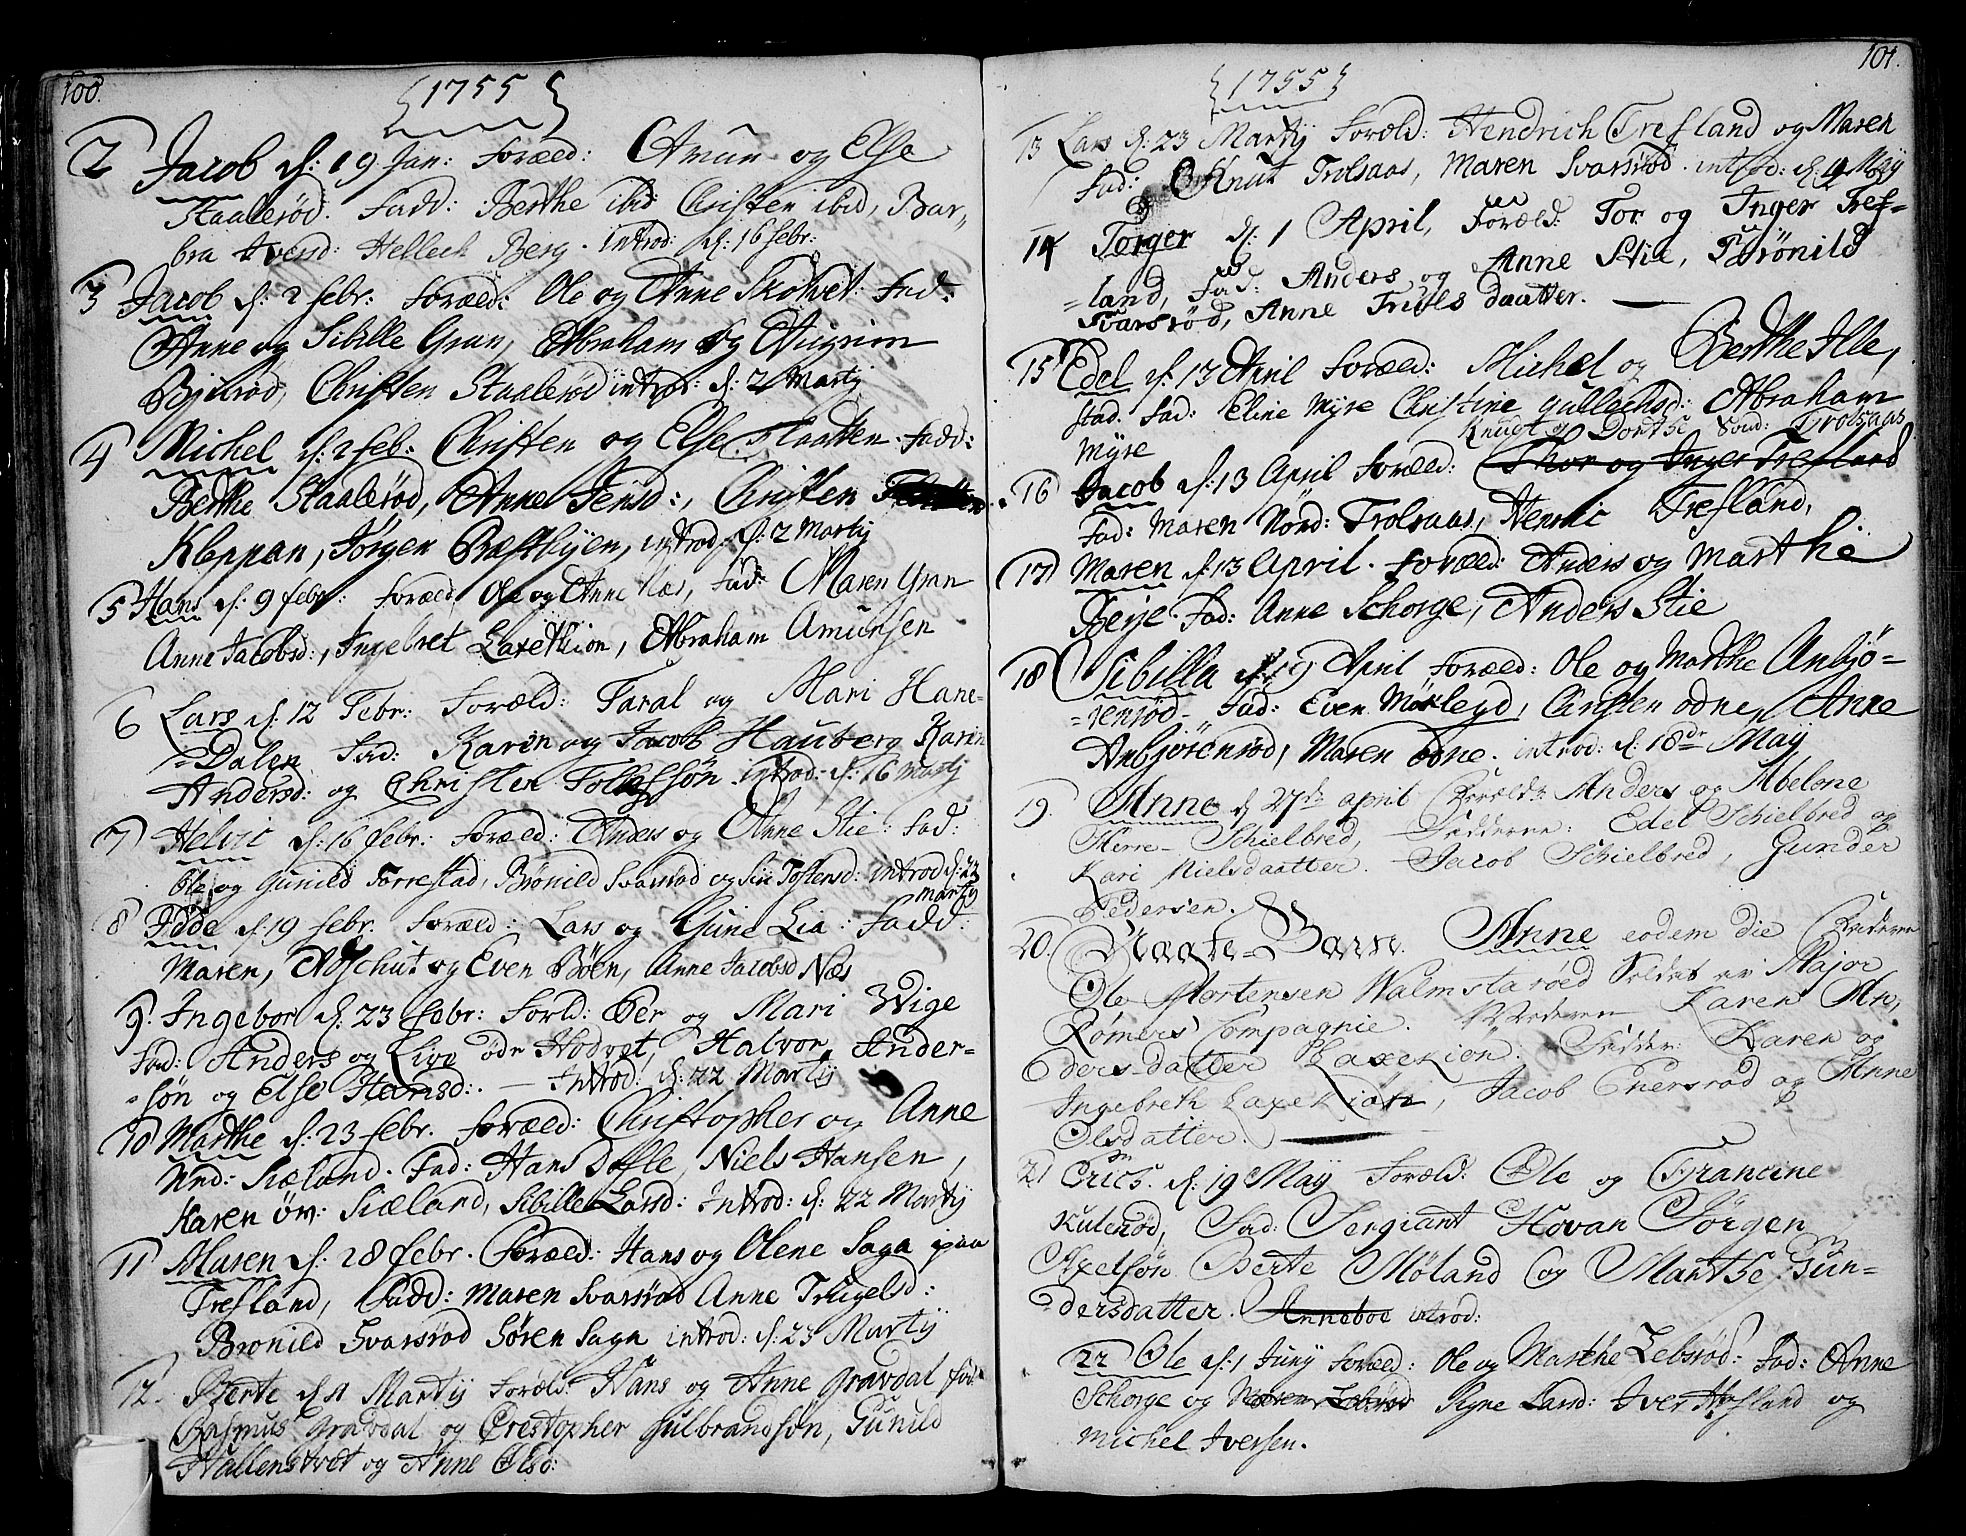 100.
{1755}
2 Jacob d: 19 Jan: Foræld: Amun og Else
Staalerød. Fadd: Berthe ibid Christen ibid, Bar-
bra Iversd: Hellech Berg. introd: d: 16 febr:
3 Jacob d: 2 febr: Foræld: Ole og Anne Skovet Fad:
Anne og Sibille Gran, Abraham og
Christen Staalerød introd: d: 2 Martij
4 Michel d: 2 feb: Christen og Else Flaatten. Fadd:
Berthe Staalerød, Anne Jensd:, Christen
Kleppan, Jørgen Præstbyen, introd: d: 2 Martij
5 Hans d: 9 febr: Foræld Ole og Anne Næs, Fad: Maren Gran
Anne Jacobsd:, Ingebret Laxekion, Abraham Amunsen
6 Lars d: 12 Febr: Foræld: Taral og Mari Hane-
=Dalen Fad: Karen og Jacob Hauberg Karin
Andersd: og Christen introd: d: 16 Martij
7 Helvic d: 16 febr: Foræld: Anders og Anne Stie: Fad:
Ole og Gunild Torrestad, Brønild Svarsrød og Siri Tostensd: introd d: 23
Martij
8 Edde d: 19 febr. Foræld: Lars og Gune Lia: Fadd:
Maren, Aschut og Even Bøen, Anne Jacobsd Næs
9. Ingebor d: 23 febr: Forld: Per og Mari Wige
Fad: Anders og Live ødr Hodvet, Halvor Ander-
=søn og Else Hansd: — Introd: d: 22 Martij
10 Marthe d: 23 febr. Foræld: Christopher og Anne
Nnd: Siæland. Fad: Hans Dofle, Niels Hansen,
Karen øv: Siæland, Sibille Larsd: Introd: d: 22 Martij
11 Maren d: 28 febr. Foræld: Hans og Olene Saga paa
Trefland, Fadd: Maren Svarsrød Anne Trugelsd:
Bronild Svarsrød Søren Saga introd: d: 23 Martij
12. Berte d: 1 Martij Foræld: Hans og Anne Gravdal fad:
Rasmus Gravdal og Crestopher Gulbrandsøn, Gunild
Hallenstvet og Anne Olsd:
101.
{1755}
13 Lars d: 23 Martij Foræld: Hendrich Trefland og Maren
Fad: Knut Trolsaas, Maren Svarsrød. introd: d: 4 Maij
14 Torger d: 1 April, Foræld: Tor og Inger Tref=
=land, Fad: Anders og Anne Stie, Brønild
Svarsrød, Anne Truels daatter. —
15 Edel d: 13 April Foræld: Michel og Berthe Ille,
stad. Fad: Eline Myre Christine Gullachsd: Abraham
Myre
Knudt og Dorthe Sønd: Trolsaas
16 Jacob d: 13 April Foræld: Thor og Inger Trefland
Fad: Maren Nord: Trolsaas, Henric Trefland,
17 Maren d: 13 April. Foræld: Anders og Marthe
Beye. Fad: Anne Schorge, Anders Stie
18 Sibilla d: 19 April Foræld: Ole og Marthe Anbjø-
=rensrød. Fad: Even Mørlegd, Christen odne, Anne
Anbjørensrød, Maren ødne. introd: d: 18de Maij
19. Anne d 27de april Forældr: Anders og Abelone
Herre-Schielbred, Fadderne: Edel Schielbred og
Kari Nielsdaatter. Jacob Schielbred, Gunder
Pedersen.
20. Uægte-Barn. Anne eodem die Faderen
Ole Mortensen Walmstarøed Soldat av Major
Rømers Compagnie. Moderen Karen An,
ders-datter Laxekion. Fadder: Karen og
Ingebreth Laxekion, Jacob Enersrød og Anne
Olsdatter.
21 Erics. d: 19 Maij Foræld: Ole og Francine
Kulerød, Fad: Sergiant Hovan Jørgen
Axelsøn Berte Møland og Marthe Gun=
dersdatter. Anneboe introd:
22 Ole d: 1 Junij Foræld: Ole og Marthe Lebsrød: Fad: Anne
Schorge og Maren Lebsrød Signe Larsd: Iver Hofland og
Michel Iversen.